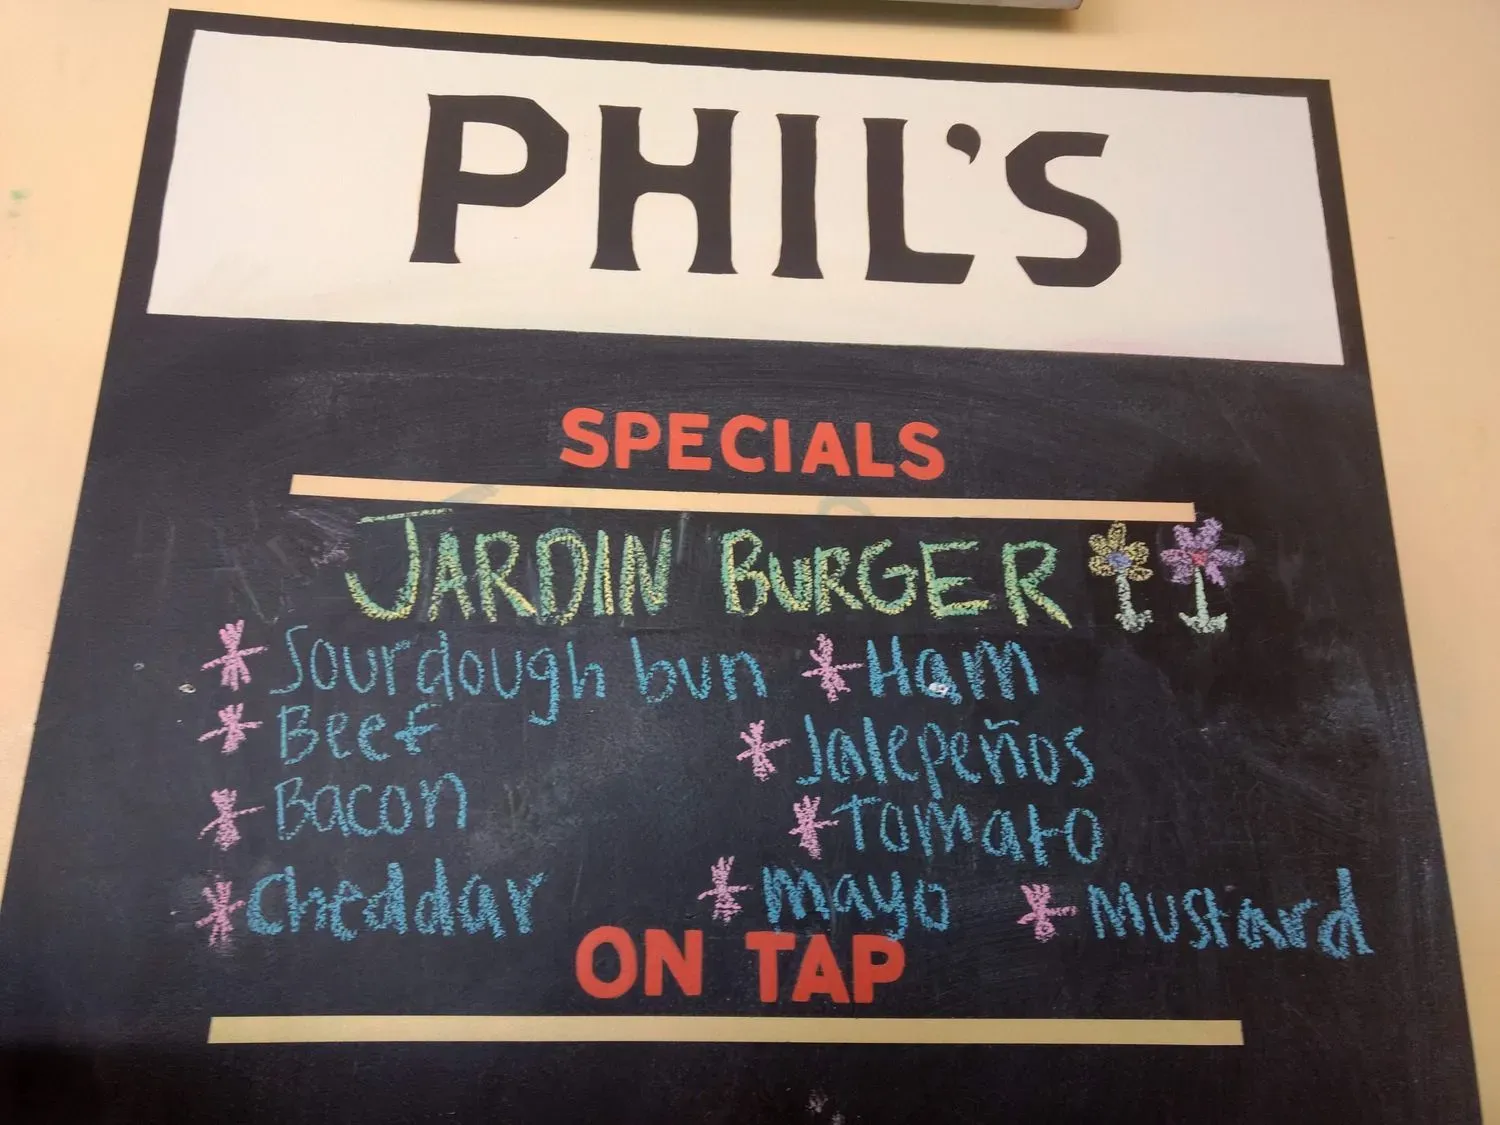 PHIL'S
SPECIALS
JARDIN BURGER
* Sourdough bun * Ham
* Beef * Jalepeños
* Bacon * Tomato
* Cheddar * mayo * Mustard
ON TAP